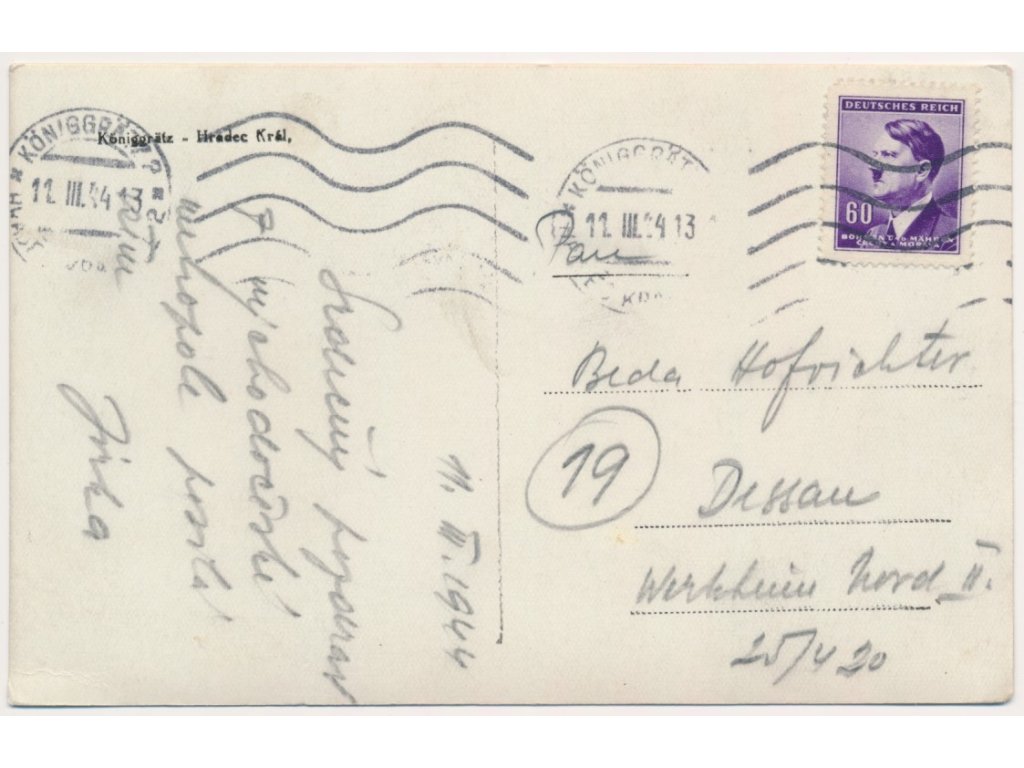 Königgrätz - Hradec Král,
KÖNIGGRÄTZ 2
11. III. 44 13
KÖNIGGRÄTZ
11. III. 44 13
DEUTSCHES REICH
60
BÖHMEN u. MÄHREN
ČECHY A MORAVA
11. III. 1944
Srdečný pozdrav
z východočeské
metropole posílá
Vám
Jirka
Pan
Beda Hofrichter
19
Dessau
Werkheim Nord II.
25/4 20